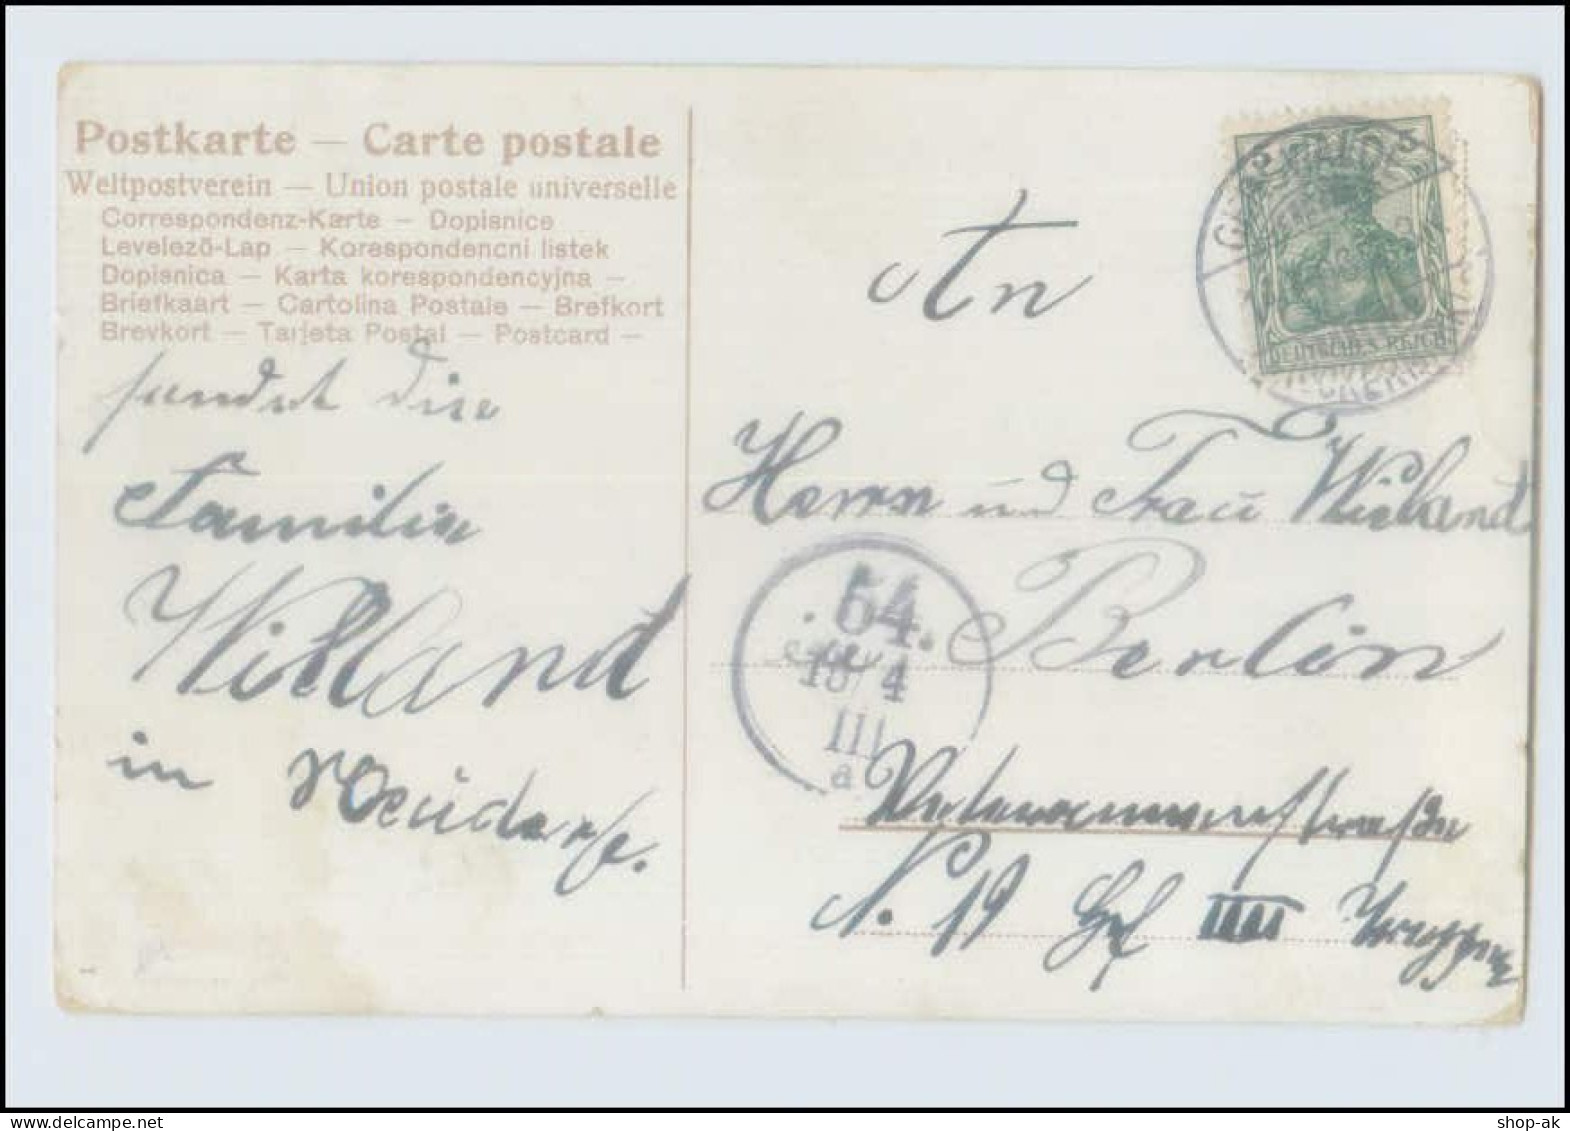 Postkarte — Carte postale
Weltpostverein — Union postale universelle
Correspondenz-Karte — Dopisnice
Levelező-Lap — Korespondencni listek
Dopisnica — Karta korespondencyjna —
Briefkaart — Cartolina Postale — Brefkort
Brevkort — Tarjeta Postal — Postcard —
sendet die
Familie
Wieland
in
An
Herrn und Frau Wieland
Berlin
N. 19 Hof IIII Treppen
DEUTSCHES REICH
5 5
54.
18/4
III
a
shop-ak